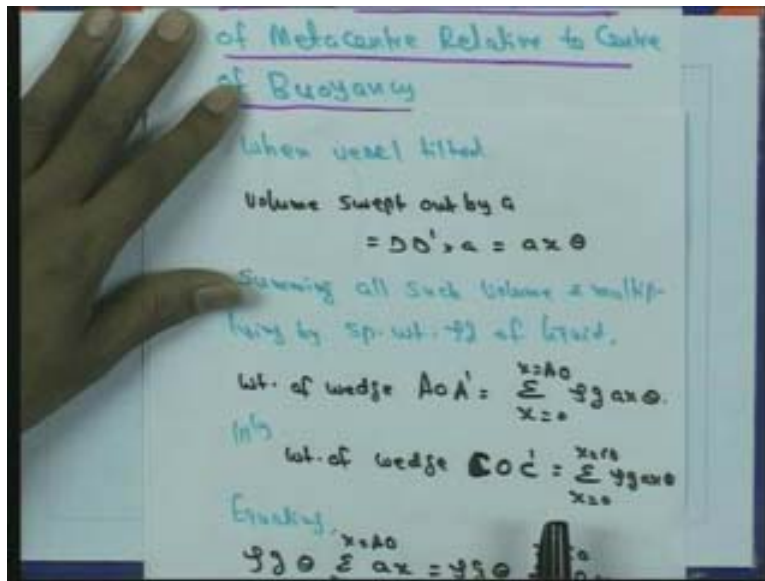 of Metacentre Relative to Centre
of Buoyancy
When vessel tilted
Volume swept out by a
= DD' × a = axθ
Summing all such volume & multip-
lying by sp. wt. ρg of liquid.
wt. of wedge AOA' = Σ ρg axθ.
x=AO
x=0
|||ly
wt. of wedge COC' = Σ ρg axθ
x=CO
x=0
Equating,
x=AO
ρgθ Σ ax = ρgθ